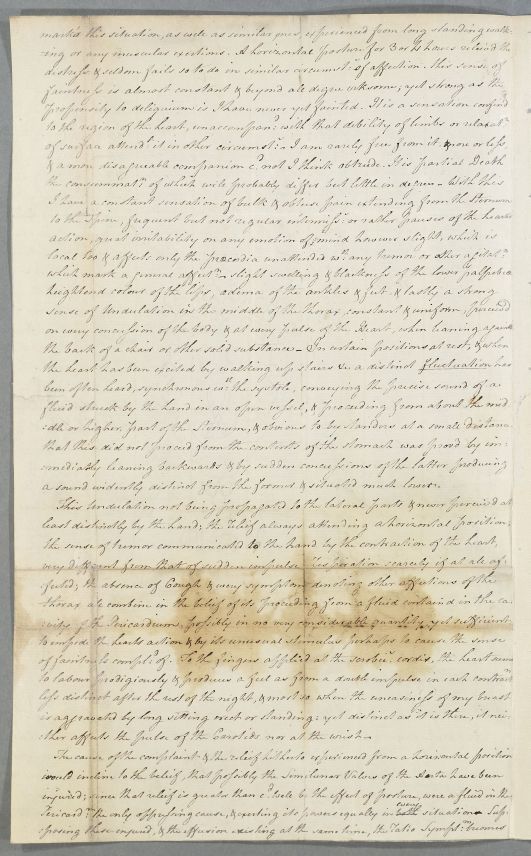 marks this situation, as well as similar ones, experienced from long standing walk-
ing or any muscular exertions. A horizontal posture for 3 or 4 hours relieved the
distress & seldom fails so to do in similar circumst.s of affection. this sense of
faintness is almost constant & beyond all degree irksome; yet strong as the
propensity to deliquium is I have never yet fainted. It is a sensation confin'd
to the region of the heart, unaccompan.d with that debility of limbs or relaxat.n
of surface attend.t it in other circumst.s I am rarely free from it more or less,
& a more disagreable companion c.d not I think obtrude. It is partial Death
the consummat.n of which will probably differ but little in degree - With this
I have a constant sensation of bulk & obtuse pain extending from the Sternum
to the Spine, frequent but not regular intermiss.s or rather pauses of the hearts
action, great irritability on any emotion of mind however slight, which is
local too & affects only the præcordia unattended w.th any tremor or other agitat.n
which mark a general affect.n - slight swelling & blackness of the lower palpebræ
heightend colour of the lips, œdema of the ankles & feet & lastly a strong
sense of Undulation in the middle of the thorax, constant & uniform, perceiv'd
on every concussion of the body & at every pulse of the Heart, when leaning against
the back of a chair or other solid substance - In certain positions at rest, & when
the heart has been excited by walking up stairs &c. a distinct fluctuation has
been often heard, synchronous w.th the systole, conveying the precise sound of a
fluid struck by the hand in an open vessel, & proceeding from about the mid-
-dle or higher part of the Sternum, & obvious to by standers at a small distance
that this did not proceed from the contents of the stomach was prov'd by im-
-mediately leaning backwards & by sudden concussions of the latter producing
a sound evidently distinct from the former & situated much lower.
This Undulation not being propagated to the lateral parts & never perceived at
least distinctly by the hand; the relief always attending a horizontal position;
the sense of tremor communicated to the hand by the contraction of the heart,
very different from that of sudden impulse; respiration scarcely if at all af-
fected; the absence of Cough & every symptom denoting other affections of the
thorax all combine in the belief of its proceeding from a fluid contained in the ca-
vity of the Pericardium, possibly in no very considerable quantity, yet sufficient
to impede the hearts action & by its unusual stimulus perhaps to cause the sense
of faintness compl.d of. To the fingers applied at the scrobic. cordis, the heart seems
to labour prodigiously & produces a feel as from a double impulse in each contract.n
less distinct after the rest of the night, & most so when the uneasiness of my breast
is aggravated by long sitting erect or standing: yet distinct as it is then, it nei-
ther affects the pulse of the Carotids nor at the wrist.
The cause of the complaint & the relief hitherto experienced from a horizontal position
would incline to the belief, that possibly the Semilunar Valves of the Aorta have been
injured; since that relief is greater than c.d well be by the effect of posture, were a fluid in the
Pericard.m the only oppressing cause, & exerting its powers equally in every situation. Sup-
-posing these injured, & the effusion existing at the same time, the ratio Sympt.m becomes